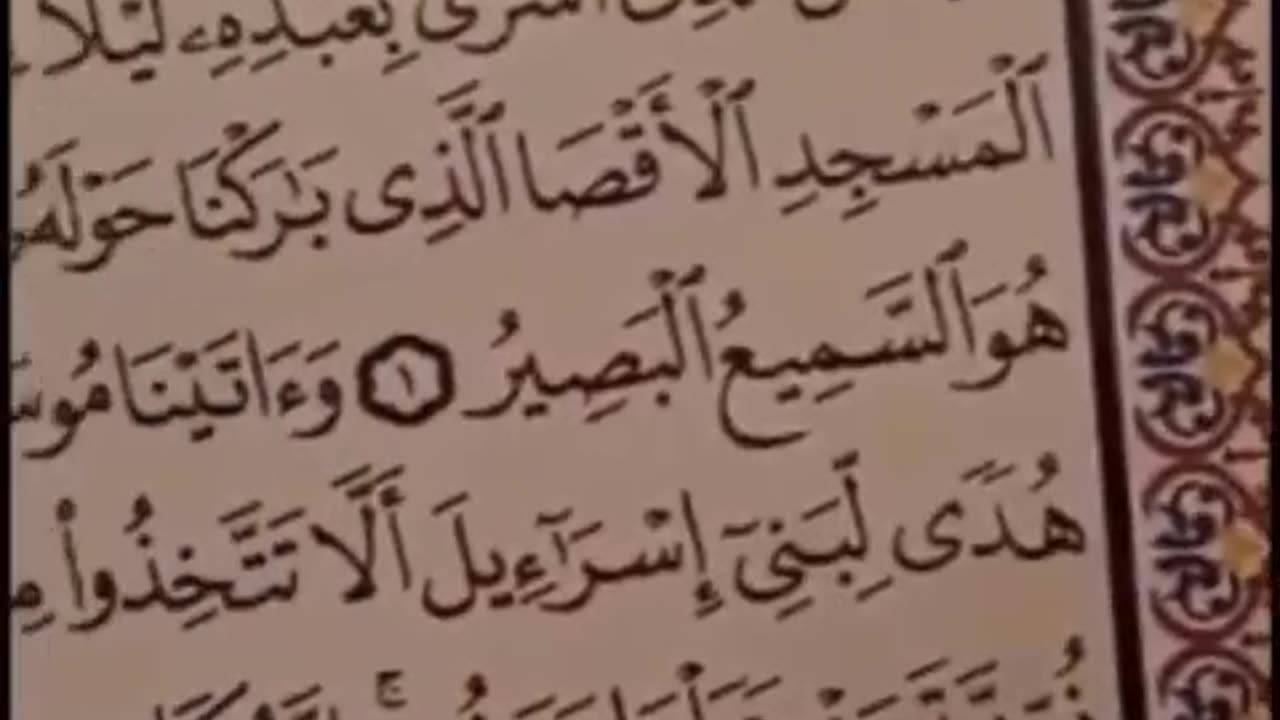 أَسْرَىٰ بِعَبْدِهِۦ لَيْلًا
ٱلْمَسْجِدِ ٱلْأَقْصَا ٱلَّذِى بَٰرَكْنَا حَوْلَهُۥ
هُوَ ٱلسَّمِيعُ ٱلْبَصِيرُ ١ وَءَاتَيْنَا مُوسَ
هُدًى لِّبَنِىٓ إِسْرَٰٓءِيلَ أَلَّا تَتَّخِذُوا۟